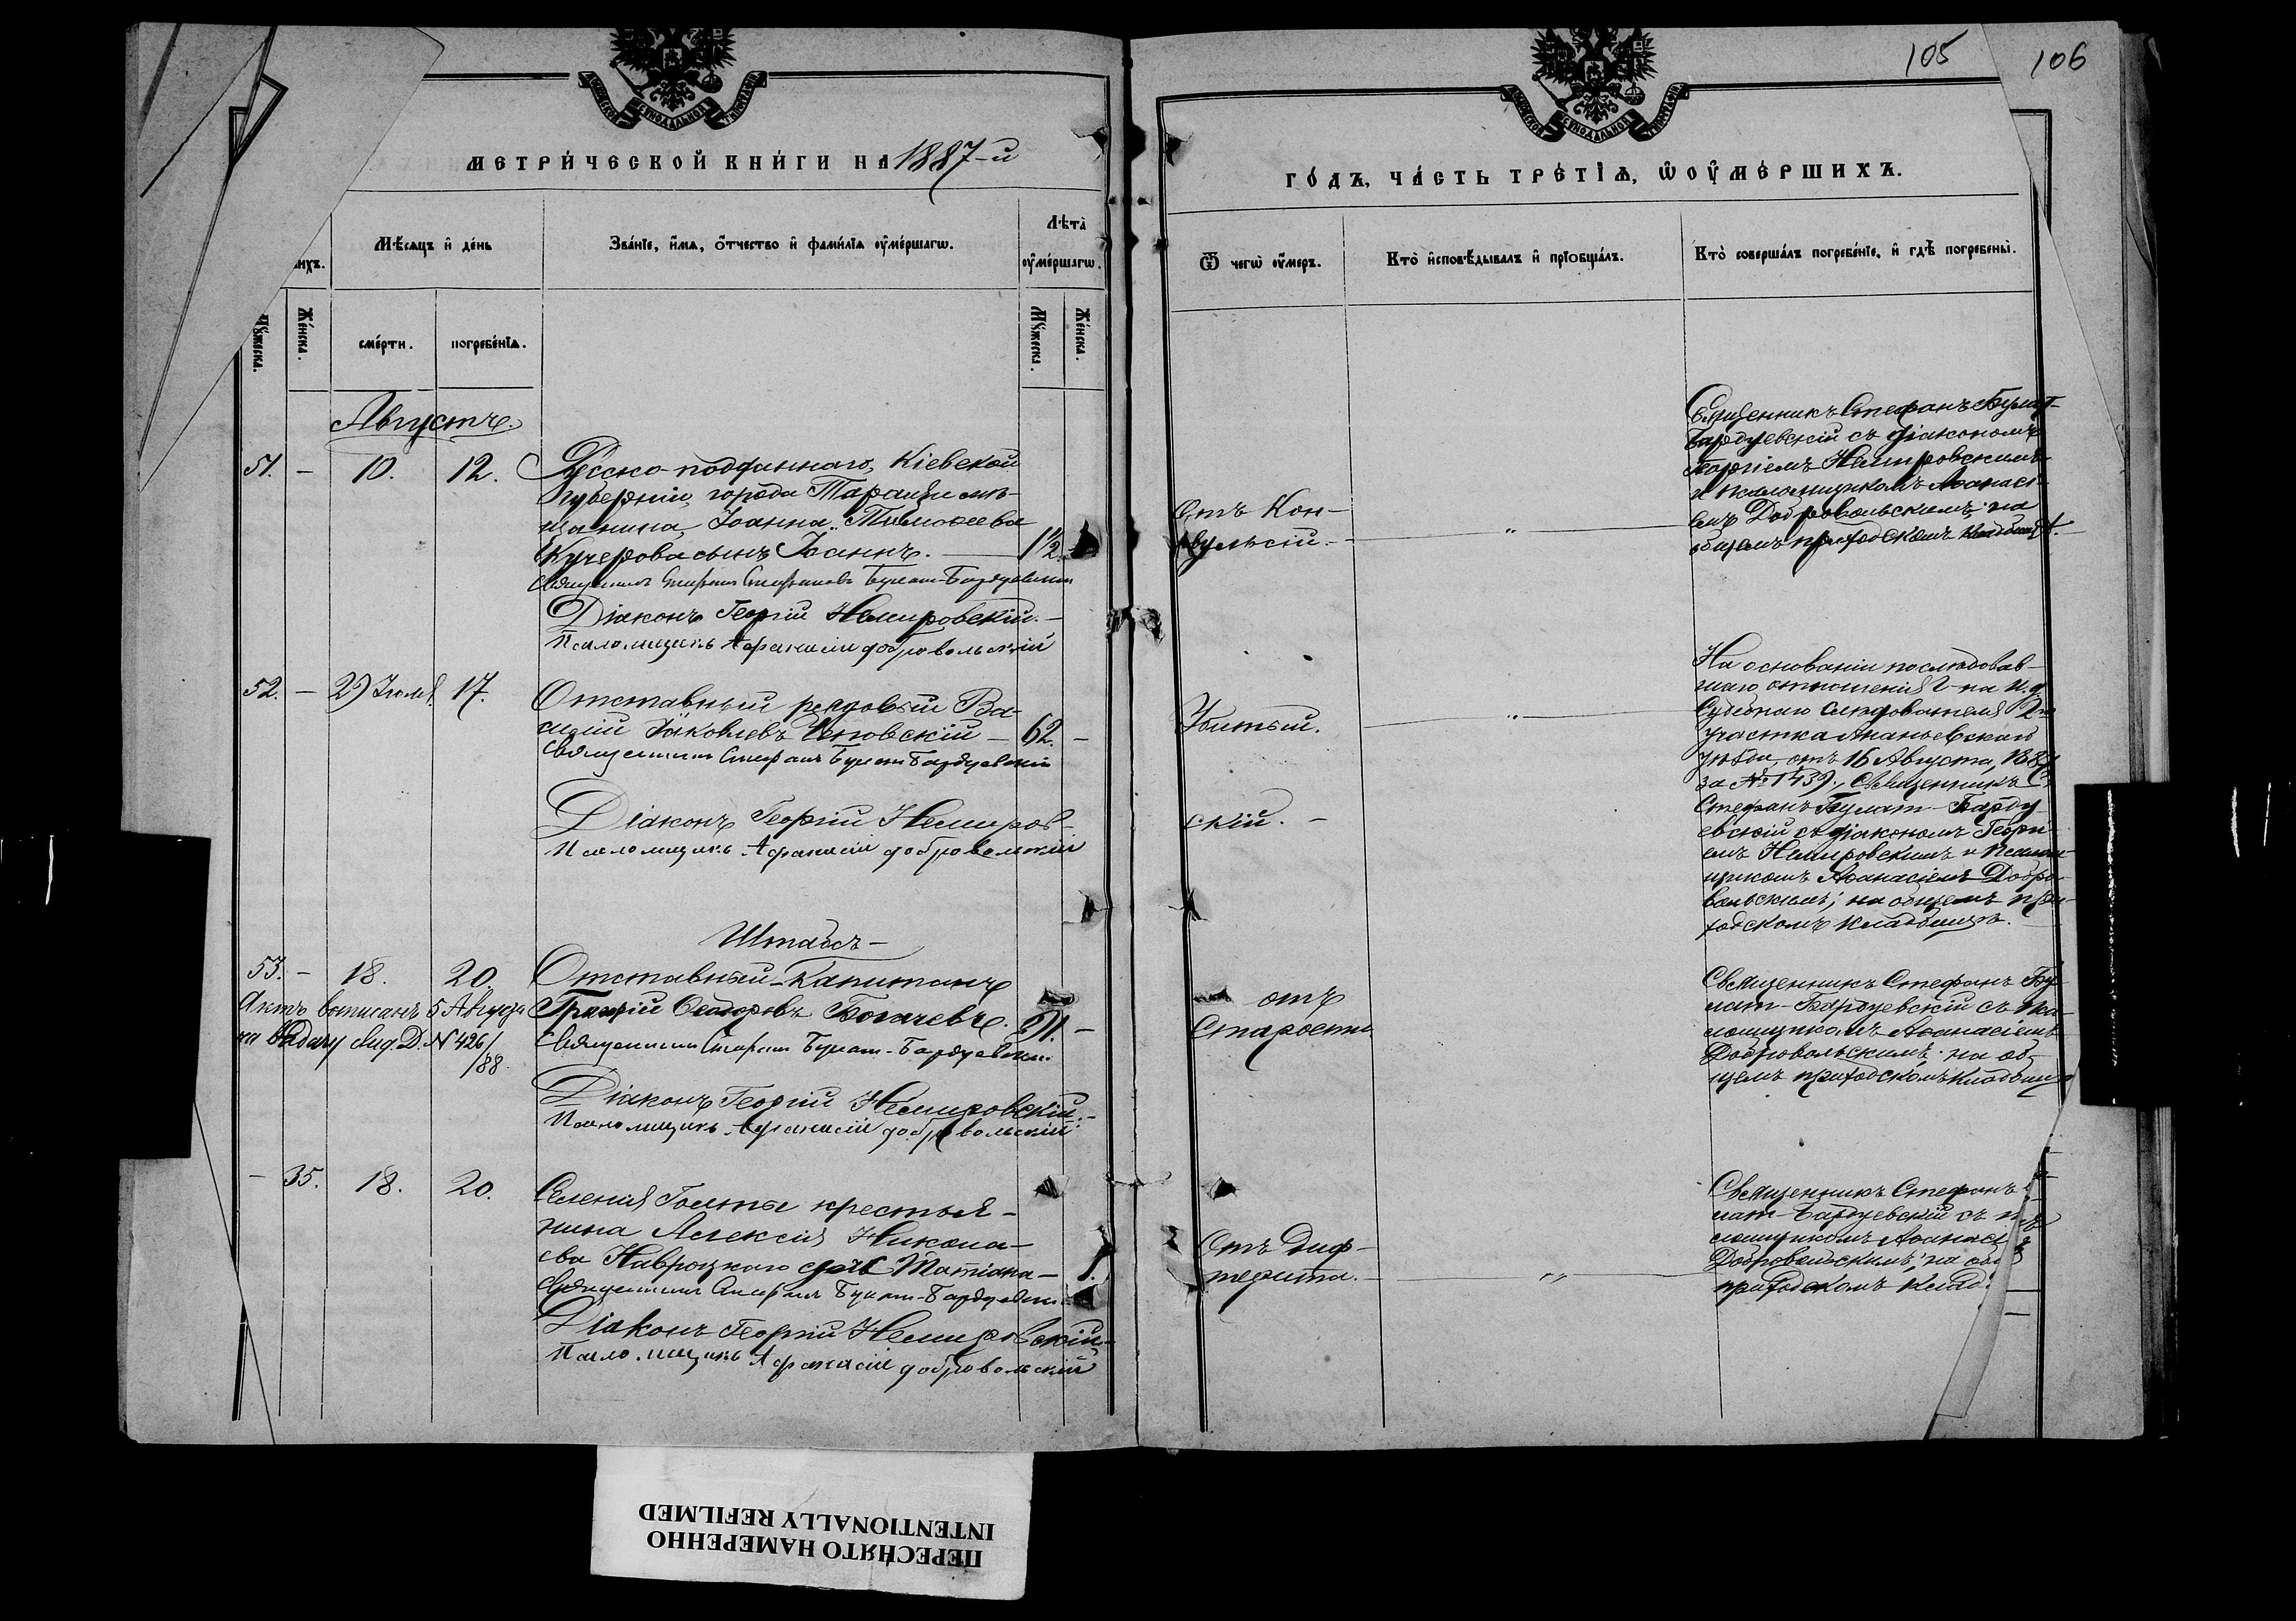 105
106
МЕТРИ́ЧЕСКОЙ КНИ́ГИ НА 1887-й
ГО́ДЪ, ЧА́СТЬ ТРЕ́ТІѦ, Ѡ҆ОУ҆МЕ́РШИХЪ.
Мѣ́сяцъ и҆ де́нь
Зва́нїе, и҆́мѧ, ѻ҆́тчество и҆ фами́лїѧ оу҆ме́ршагѡ.
Лѣ́та оу҆ме́ршагѡ.
Ѿ чегѡ̀ оу҆́меръ.
Кто̀ и҆сповѣ́дывалъ и҆ прїобща́лъ.
Кто̀ соверша́лъ погребе́нїе, и҆ гдѣ̀ погребены̀.
Мꙋ́жеска.
Же́нска.
сме́рти.
погребе́нїѧ.
Мꙋ́жеска.
Же́нска.
Августъ.
51. - 10. 12.
Русско-подданнаго, Кіевской
губерніи, города Таращи мѣ-
щанина, Іоанна Тимоѳеева
Кучерова сынъ Іоаннъ. — 1½.
Священникъ Стефанъ Булат-Бардуевскій
Діаконъ Георгій Немировскій. -
Псаломщикъ Афанасій Добровольскій
Отъ Кон-
вульсій. - „
Священникъ Стефанъ Булат-
Бардуевскій съ діакономъ
Георгіемъ Немировскимъ
и псаломщикомъ Аѳанасі-
емъ Добровольскимъ на
общемъ приходскомъ кладбищѣ.
52. - 29 Іюля 17.
Отставный рядовый Ва-
силій Яковлевъ - 62. -
Священникъ Стефанъ Булат-Бардуевскій
Діаконъ Георгій Немиров-
скій. -
Псаломщикъ Афанасій Добровольскій
Убитый. „
На основаніи послѣдовав-
шаго отношенія Г-на И.д.
Судебнаго Слѣдователя 2го
участка Ананьевскаго
уѣзда, отъ 16 Августа, 1887
за № 1439, Священникъ
Стефанъ Булат-Барду
евскій съ діакономъ Георгі
емъ Немировскимъ и псалом-
щикомъ Аѳанасіемъ Добро-
вольскимъ; на общемъ при-
ходскомъ кладбищѣ.
53. - 18. 20.
Штабсъ-
Отставный-Капитанъ
Ѳеодоровъ Богачевъ. 91. -
Актъ выписанъ 5 Августа
на выдачу Лид. Д. N 426/
/88.
Священникъ Стефанъ Булат-Бардуевскій.
Діаконъ Георгій Немировскій. -
Псаломщикъ Афанасій Добровольскій
отъ
Старости
Священникъ Стефанъ Бу-
лат-Бардуевскій съ пса-
ломщикомъ Аѳанасіемъ
Добровольскимъ на об-
щемъ приходскомъ кладбищѣ
- 35. 18. 20.
Селенія Голты крестья-
нина Алексія Никола-
ева Навроцкаго дочь Татіана - 1.
Священникъ Стефанъ Булат-Бардуевскій
Діаконъ Георгій Немировскій -
Псаломщикъ Афанасій Добровольскій
Отъ Диф-
терита. „
Священникъ Стефанъ
лат-Бардуевскій съ п
ломщикомъ Аѳанасі
Добровольскимъ, на об
приходскомъ клад
ПЕРЕСНЯТО НАМЕРЕННО
INTENTIONALLY REFILMED